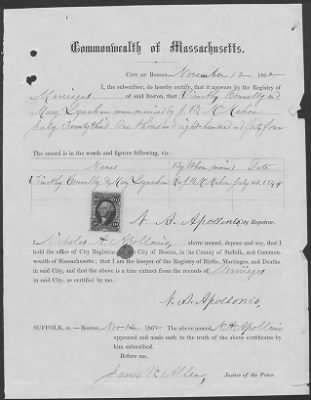 Commonwealth of Massachusetts.
CITY OF BOSTON, November 12 1862
I, the subscriber, do hereby certify, that it appears by the Registry of
Marriages of said Boston, that Timothy Connelly and
Mary Lynahan were married by J. B. McMahon
July Twenty third One thousand eight hundred and forty four
The record is in the words and figures following, viz:
Names By Whom married Date
Timothy Connelly & Mary Lynahan J. B. McMahon July 23. 1844
N. A. Apollonio, City Registrar.
I, Nicholas A. Apollonio, above named, depose and say, that I
hold the office of City Registrar of the City of Boston, in its County of Suffolk, and Common-
wealth of Massachusetts; that I am the keeper of the Registry of Births, Marriages, and Deaths,
in said City, and that the above is a true extract from the records of Marriages
in said city, as certified by me.
N. A. Apollonio,
SUFFOLK, ss.—Boston, Nov 12 1862. The above named, N. A. Apollonio
appeared and made oath to the truth of the above certificates by
him subscribed.
Before me,
James R. Allen, Justice of the Peace.